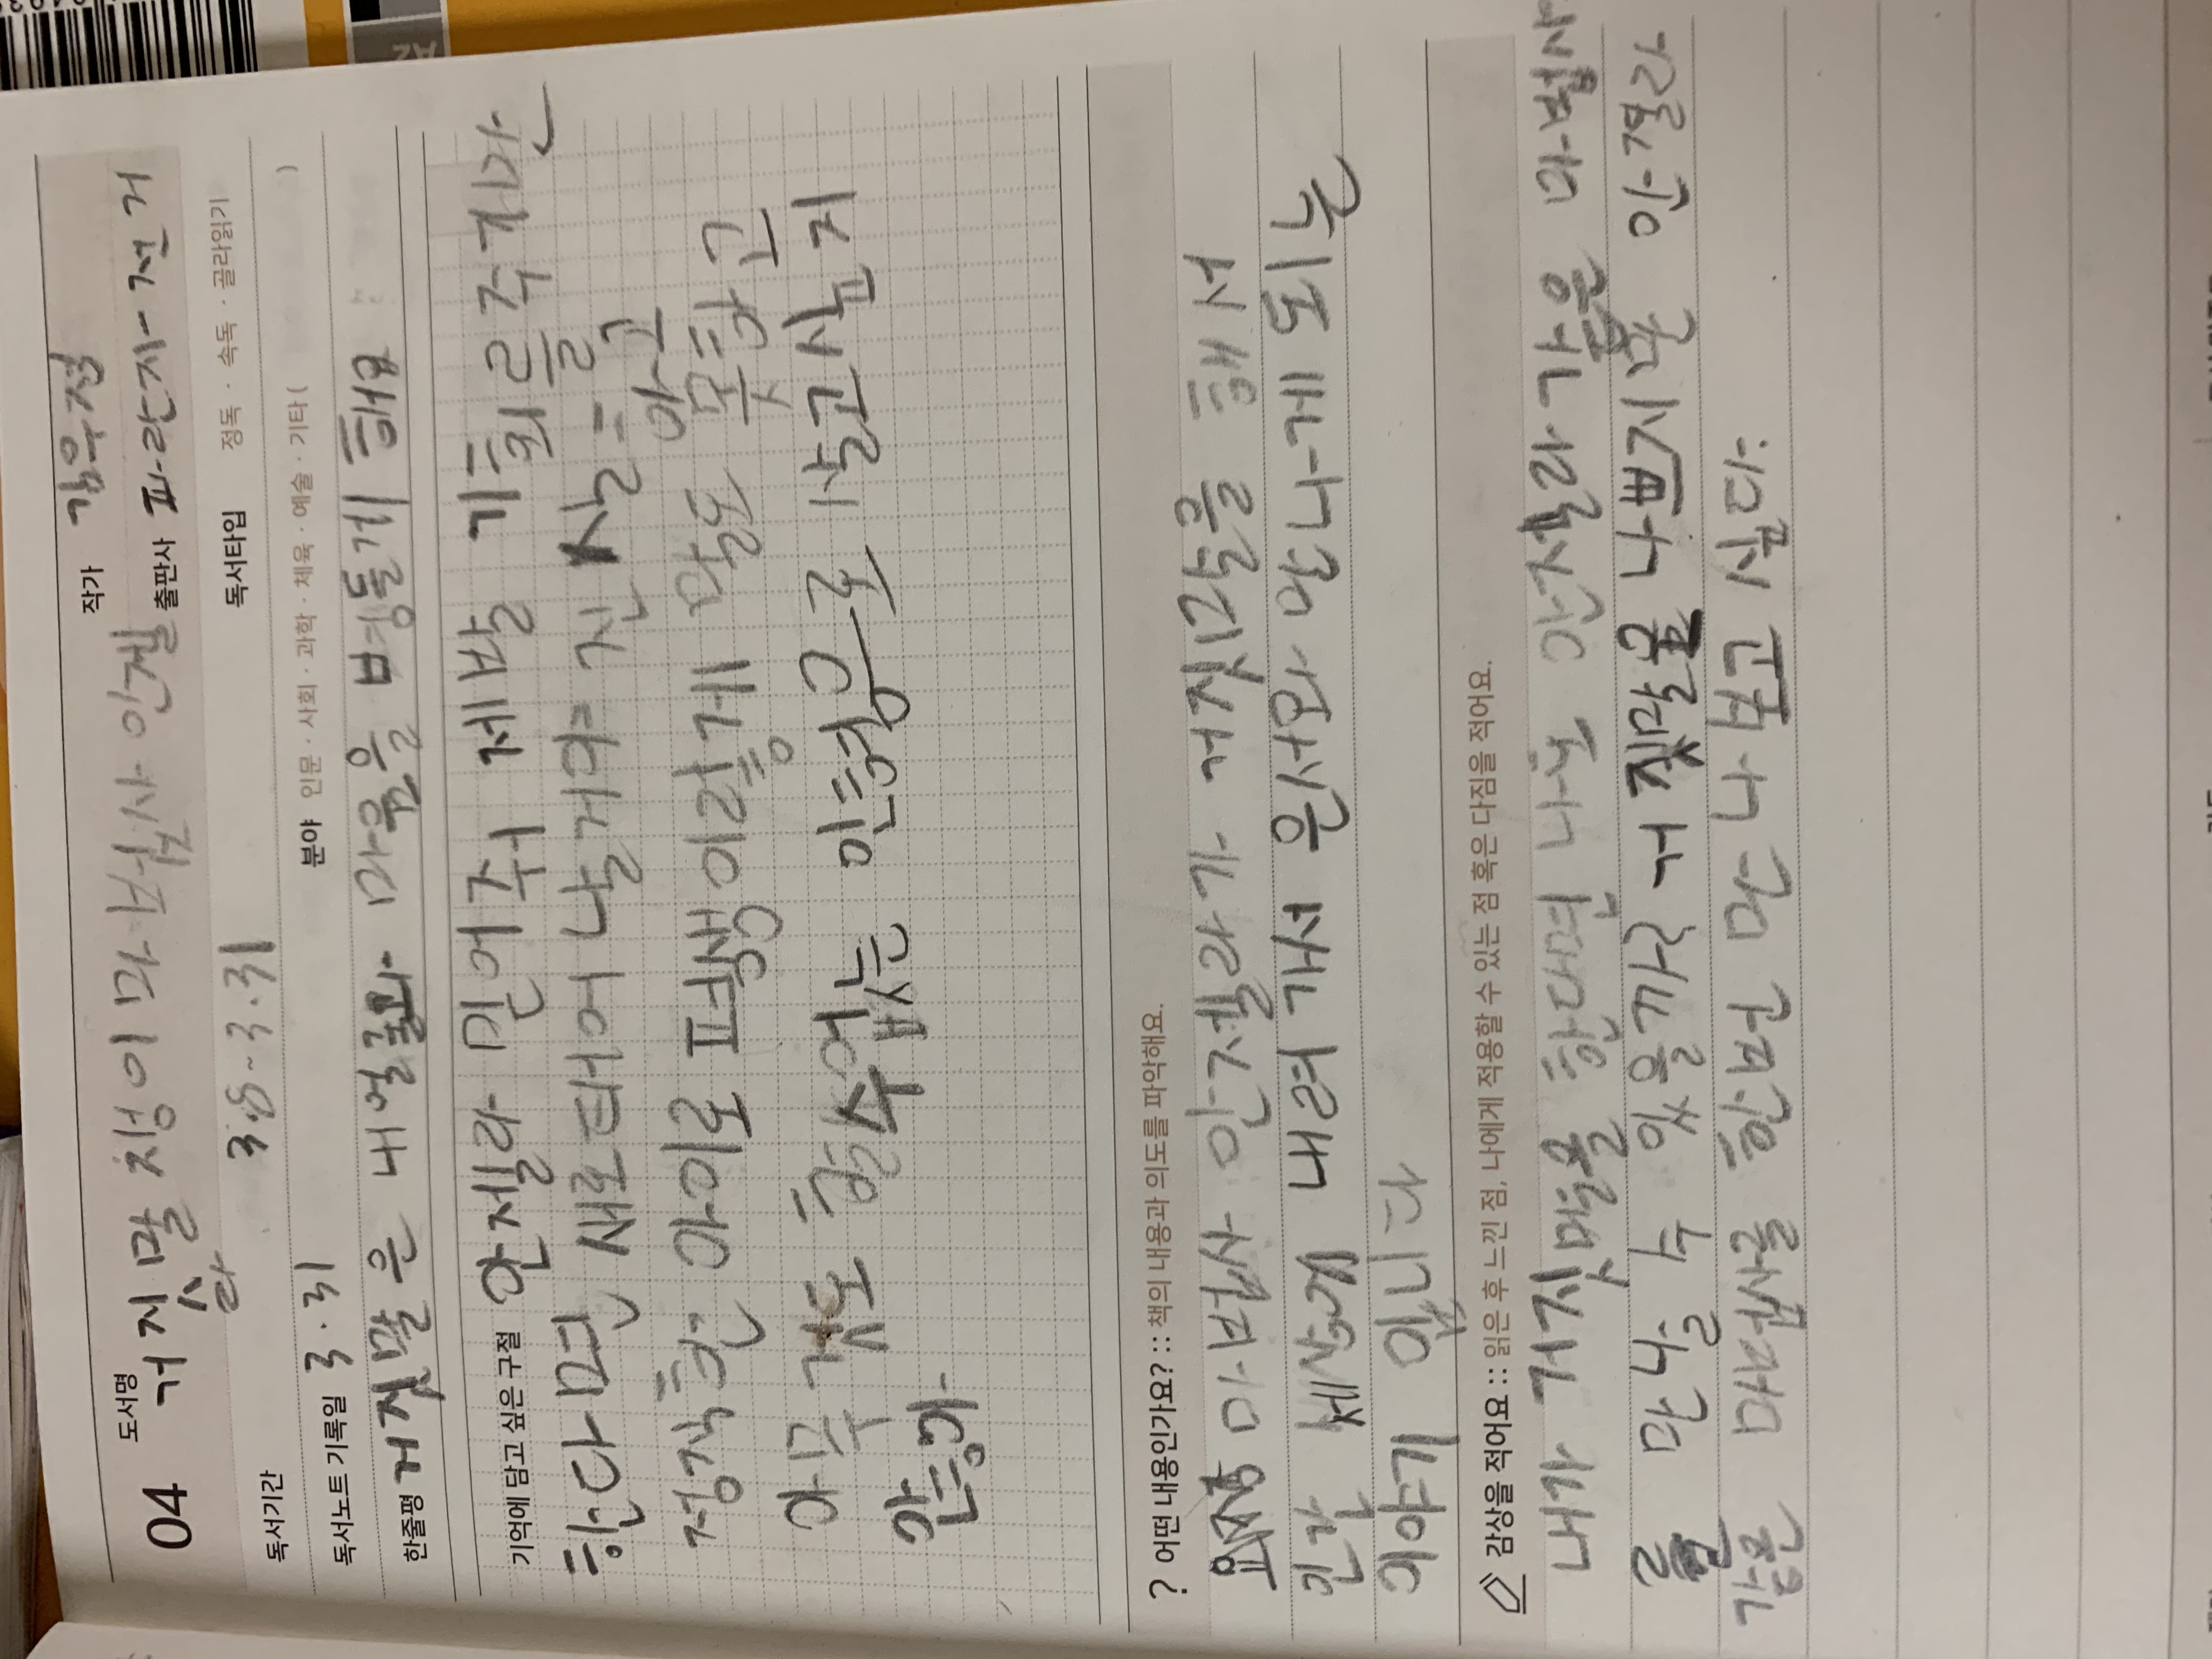 작가 김우정
04 도서명 거짓말쟁이 마법사 안젤
라
출판사 파란자전거
독서기간 3.8~3.31 독서타입 정독 · 속독 · 골라읽기
독서노트 기록일 3.31 분야 인문 · 사회 · 과학 · 체육 · 예술 · 기타 ( )
한줄평 거짓말은 내 얼굴과 마음을 병들게 해요
기억에 담고 싶은 구절 안젤라 믿어줘 제발 기회를주기만
한다면 새로 태어 날거야 진실하고
정직한 아이로 평생이렇게 말도 못하고
아무것도 할수없는 인형으로 살고싶지
안하아
? 어떤 내용인가요? :: 책의 내용과 의도를 파악해요.
요정 마법사 안젤라가 거짓말을 해서
인간 세상에 내려 가서 은서와 만나게 되는
이야기 입니다
감상을 적어요 :: 읽은 후 느낀 점, 나에게 적용할 수 있는 점 혹은 다짐을 적어요.
내가 거짓말을 한다면 나도 안젤라 같은 마법사
를 만날 수 있을까? 거짓말을 나쁘지만 안젤라
같은 마법사를 한번 만나보고 싶다.